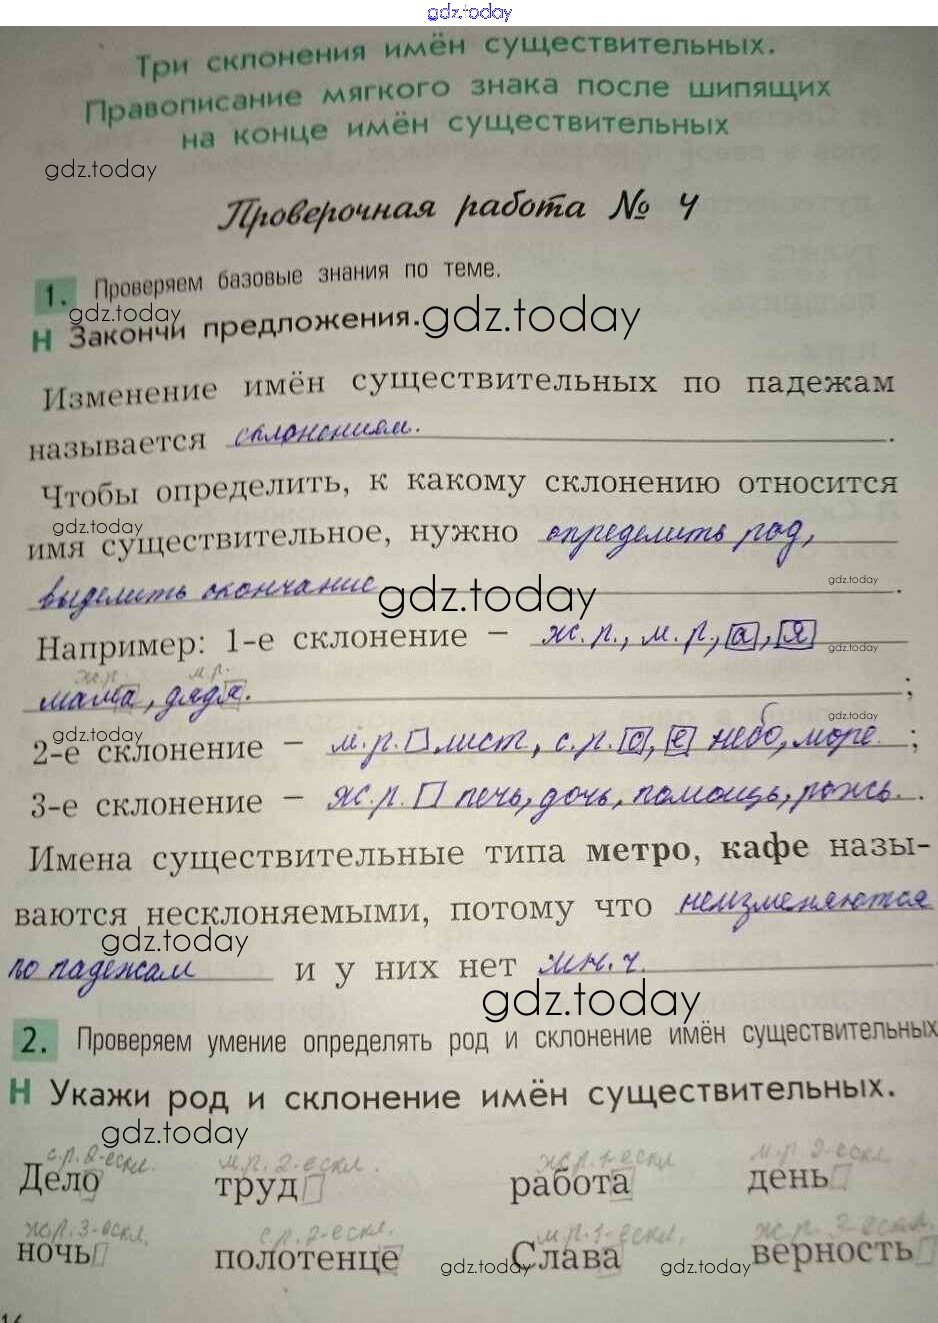 gdz.today
Три склонения имён существительных.
Правописание мягкого знака после шипящих
на конце имён существительных
gdz.today
Проверочная работа № 4
1. Проверяем базовые знания по теме.
gdz.today
Н Закончи предложения. gdz.today
Изменение имён существительных по падежам
называется склонением.
Чтобы определить, к какому склонению относится
gdz.today
имя существительное, нужно определить род,
выделить окончание gdz.today gdz.today.
Например: 1-е склонение – ж.р., м.р., а, я
gdz.today
ж.р. м.р.
мама, дядя. ;
gdz.today gdz.today
2-е склонение – м.р. лист, с.р. о, е небо, море ;
3-е склонение – ж.р. печь, дочь, помощь, рожь.
Имена существительные типа метро, кафе назы-
ваются несклоняемыми, потому что неизменяются
gdz.today
по падежам и у них нет мн.ч.
gdz.today
2. Проверяем умение определять род и склонение имён существительных
Н Укажи род и склонение имён существительных.
gdz.today
с.р. 2-ескл. м.р. 2-ескл. ж.р. 1-ескл м.р 2-ескл
Дело труд работа день
ж.р. 3-ескл. с.р. 2-ескл. м.р. 1-ескл. ж.р. 3-ескл.
ночь полотенце Слава верность
gdz.today gdz.today
16